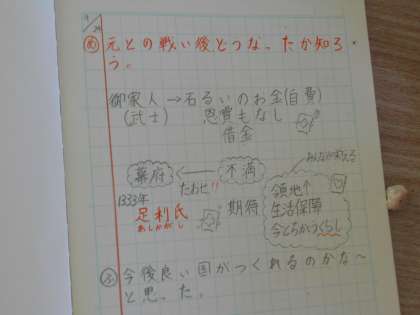 9/24
め 元との戦い後どうなったか知ろ
う。
御家人→石るいのお金(自費)
(武士) 恩賞もなし
借金
みんなが考える
幕府 ← 不満
たおせ!!
1333年
足利氏
あしかがし
期待
領地↑
生活保障
今とちがうくらし
ふ 今後良い国がつくれるのかな~
と思った。